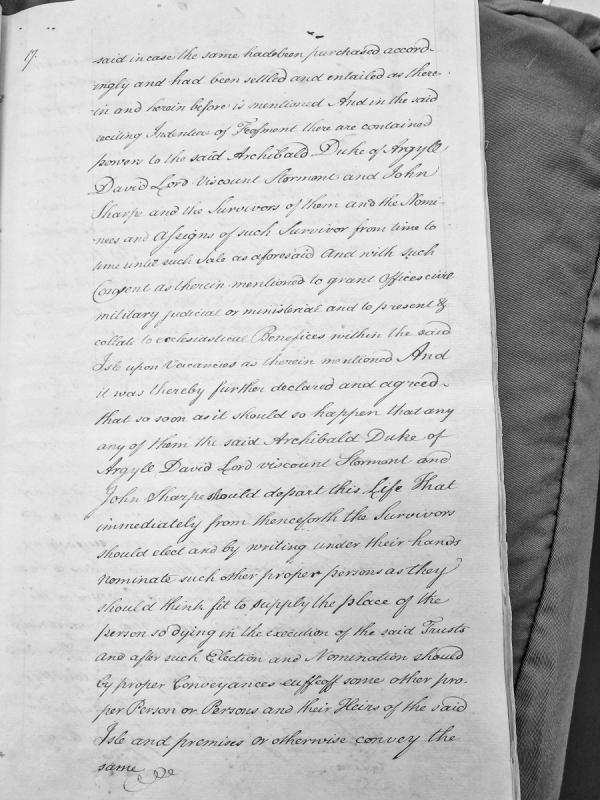 17.
said in case the same had been purchased accord-
ingly and had been settled and entailed as there-
in and herein before is mentioned And in the said
reciting Indenture of Feofment there are contained
powers to the said Archibald Duke of Argyll
David Lord Viscount Stormont and John
Sharpe and the Survivors of them and the Nomi-
nees and Assigns of such Survivor from time to
time until such Sale as aforesaid And with such
Consent as therein mentioned to grant Offices civil
military judicial or ministerial and to present &
collate to ecclesiastical Benefices within the said
Isle upon Vacancies as therein mentioned And
it was thereby further declared and agreed
that so soon as it should so happen that any
any of them the said Archibald Duke of
Argyll David Lord viscount Stormont and
John Sharpe should depart this Life That
immediately from thenceforth the Survivors
should elect and by writing under their hands
nominate such other proper persons as they
should think fit to supply the place of the
person so dying in the execution of the said Trusts
And after such Election and Nomination should
by proper Conveyances enffeoff some other pro-
per Person or Persons and their Heirs of the said
Isle and premises or otherwise convey the
same